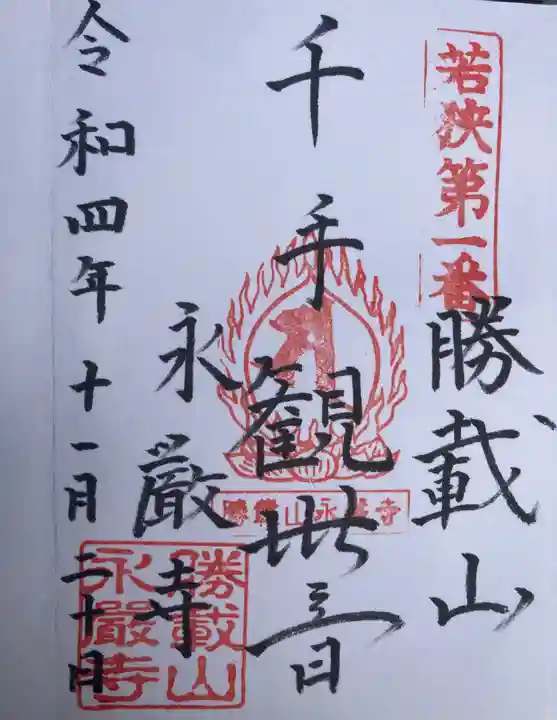 若狭第一番
勝載山
千手観世音
勝載山永厳寺
永厳寺
勝載山
永嚴寺
令和四年十一月二十日